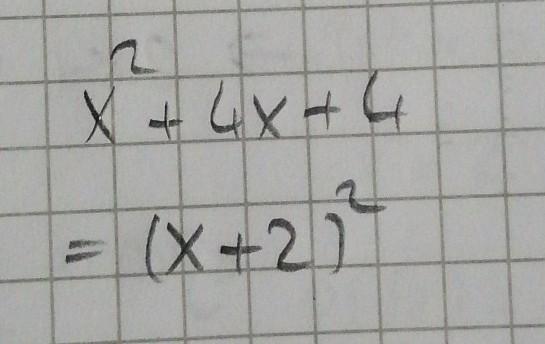 x² + 4x + 4
= (x + 2)²